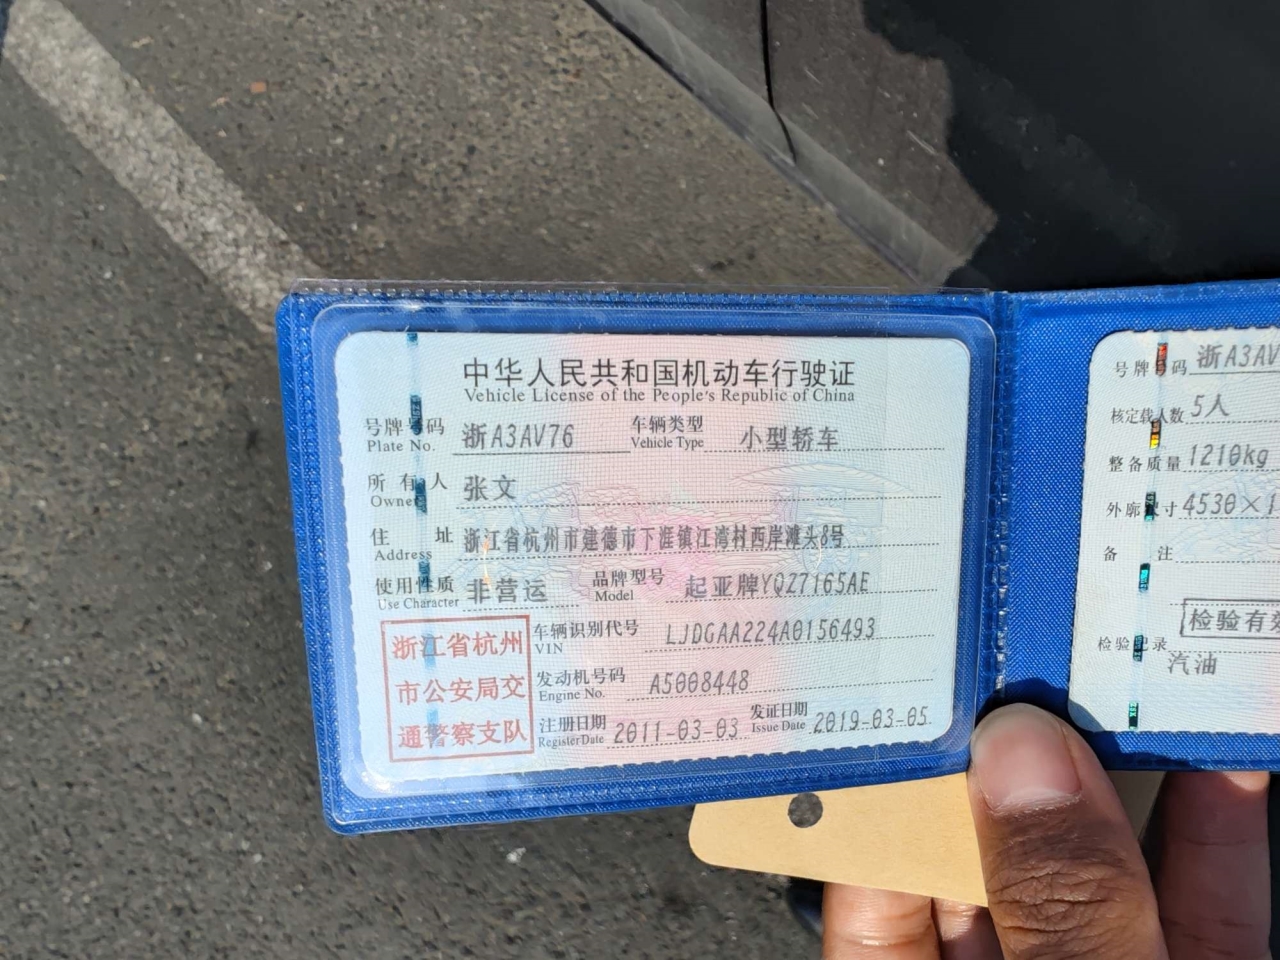 中华人民共和国机动车行驶证
Vehicle License of the People's Republic of China
号牌号码 浙A3AV76 车辆类型 小型轿车
Plate No. Vehicle Type
所有人 张文
Owner
住址 浙江省杭州市建德市下涯镇江湾村西岸滩头8号
Address
使用性质 非营运 品牌型号 起亚牌YQZ7165AE
Use Character Model
浙江省杭州
市公安局交
通警察支队
车辆识别代号 LJDGAA224A0156493
VIN
发动机号码 A5008448
Engine No.
注册日期 2011-03-03 发证日期 2019-03-05
Register Date Issue Date
号牌号码 浙A3AV
核定载人数 5人
整备质量 1210kg
外廓尺寸 4530×1
备注
检验有效
检验记录
汽油